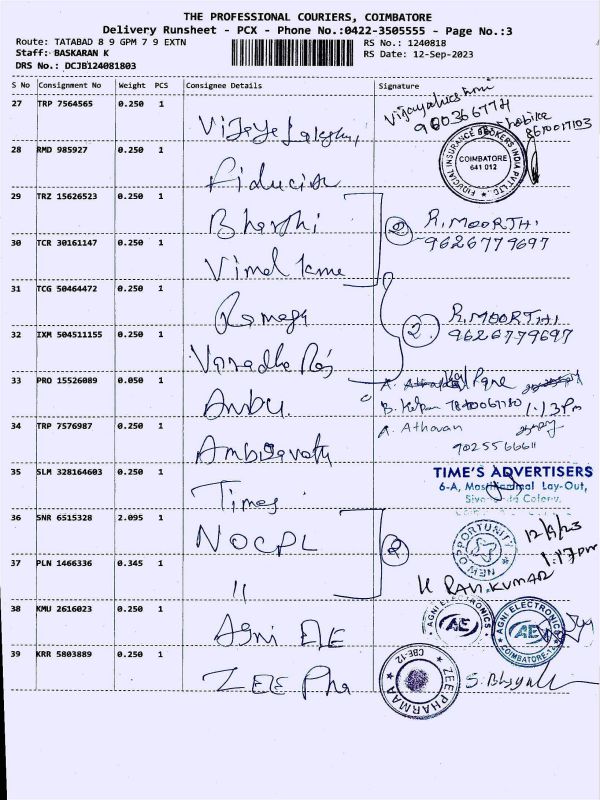 THE PROFESSIONAL COURIERS, COIMBATORE
Delivery Runsheet - PCX - Phone No.:0422-3505555 - Page No.:3
Route: TATABAD 8 9 GPM 7 9 EXTN
RS No.: 1240818
Staff: BASKARAN K
RS Date: 12-Sep-2023
DRS No.: DCJB124081803
S No Consignment No Weight PCS Consignee Details Signature
27 TRP 7564565 0.250 1
28 RMD 985927 0.250 1 Fiducia
FIDUCIAL INSURANCE BROKERS INDIA PVT LTD.
COIMBATORE
641 012
29 TRZ 15626523 0.250 1 Bharthi 2 R. MOORTHI
9626779697
30 TCR 30161147 0.250 1 Vimal
31 TCG 50464472 0.250 1 2. R. MOORTHI
9626779697
32 IXM 504511155 0.250 1
33 PRO 15526089 0.050 1 Anbu. 1.13pm
34 TRP 7576987 0.250 1 A. Athavan
9025566611
35 SLM 328164603 0.250 1 Times
TIME'S ADVERTISERS
6-A, Lay-Out,
Colony,
36 SNR 6515328 2.095 1 NOCPL 2
NEW OPPORTUNITY
12/9/23
1.17pm
37 PLN 1466336 0.345 1 "
K RAVIKUMAR
38 KMU 2616023 0.250 1 Agni ELE
AGNI ELECTRONICS
AE
AGNI ELECTRONICS
AE
COIMBATORE-12
39 KRR 5803889 0.250 1 ZEE Pha
ZEE PHARMAA
CBE-12